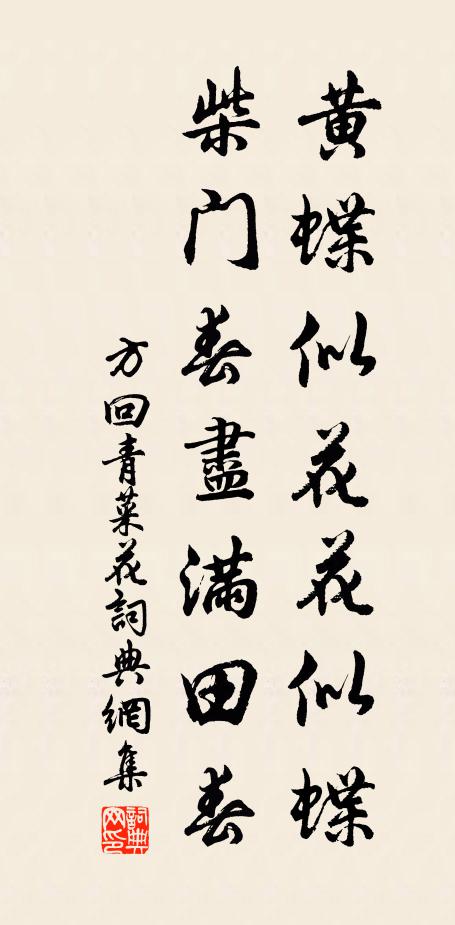 黄蝶似花花似蝶
柴门春盡滿田春
方回青菜花詞典網集
詞典网印